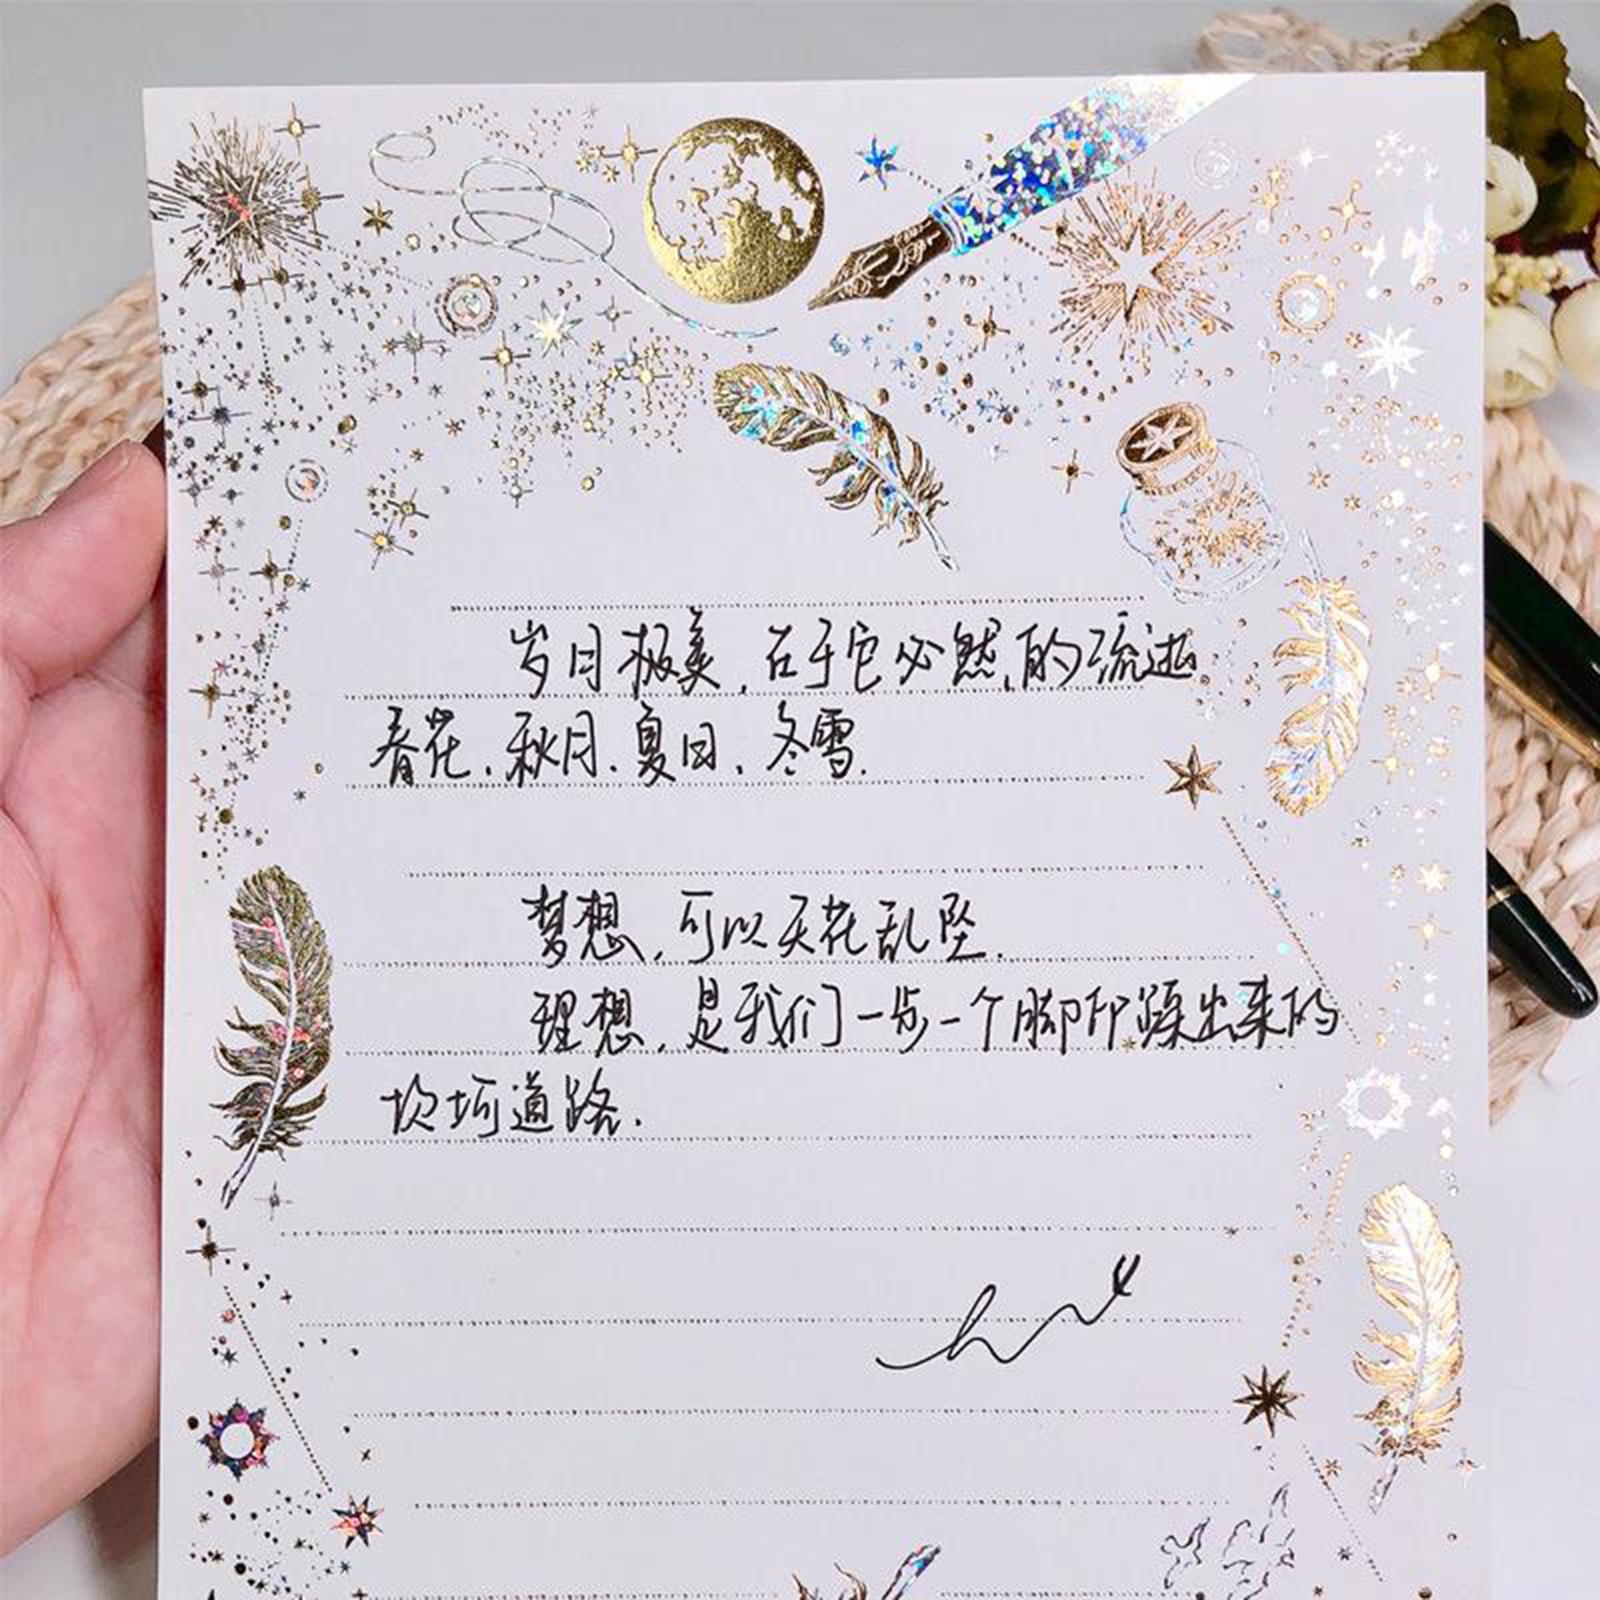 岁月极美,在于它必然的流逝
春花、秋月、夏日、冬雪.
梦想,可以天花乱坠.
理想,是我们一步一个脚印踩出来的
坎坷道路.